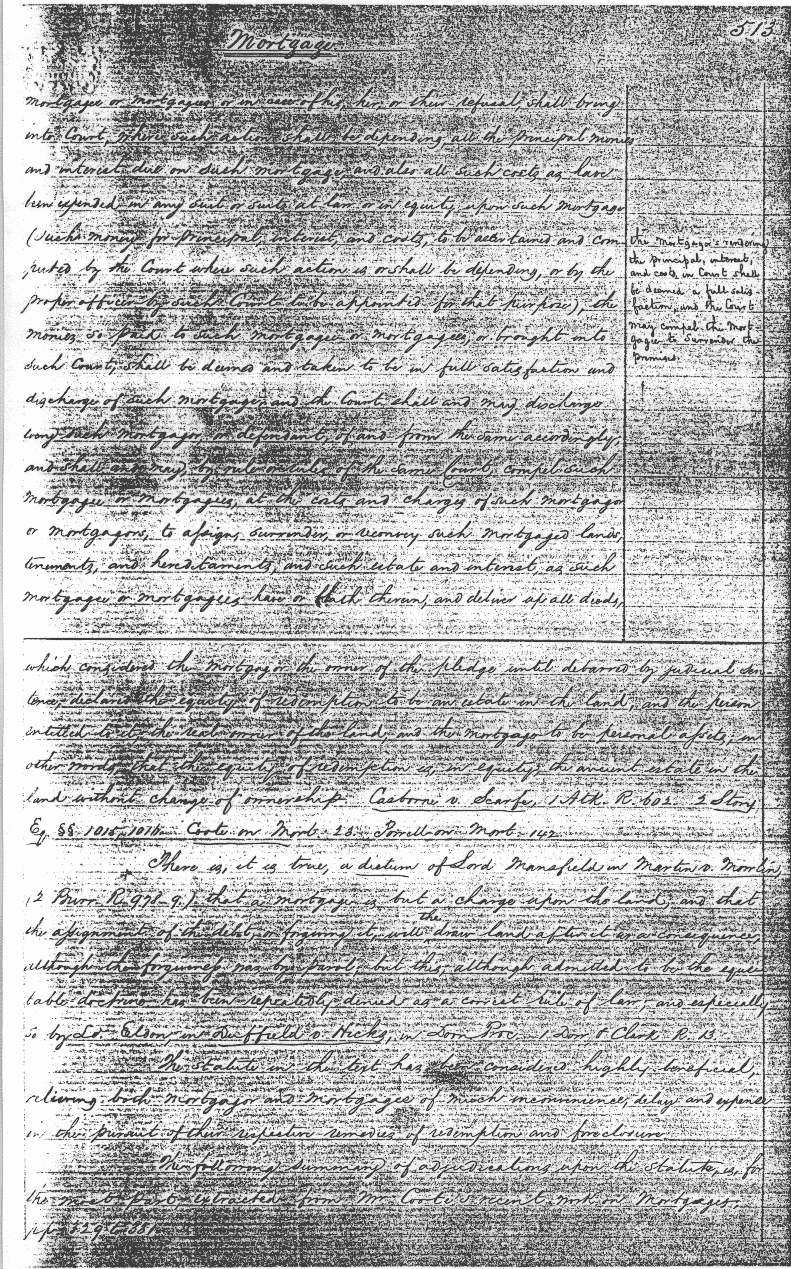 513
Mortgage.
mortgagee or mortgagees, or in case of his, her, or their refusal, shall bring
into Court, where such action shall be depending, all the principal monies
and interest due on such mortgage, and also all such costs as have
been expended in any suit or suits at law or in equity upon such mortgage
(such money for principal, interest, and costs, to be ascertained and com
puted by the Court where such action is or shall be depending, or by the
proper officer by such Court to be appointed for that purpose), the
monies so paid to such mortgagee or mortgagees, or brought into
such Court, shall be deemed and taken to be in full satisfaction and
discharge of such mortgage, and the Court shall and may discharge
every such mortgagor, or defendant, of and from the same accordingly;
and shall and may, by rule or rules of the same Court, compel such
mortgagee or mortgagees, at the costs and charges of such mortgagor
or mortgagors, to assign, surrender, or reconvey such mortgaged lands,
tenements, and hereditaments, and such estate and interest, as such
mortgagee or mortgagees have or hath therein, and deliver up all deeds,
the mortgagor's rendering
the principal, interest,
and costs, in Court shall
be deemed a full satis
faction, and the Court
may compel the Mort-
gagee to surrender the
premises.
which considered the mortgagor the owner of the pledge until debarred by judicial sen
tence, declared the equity of redemption to be an estate in the land, and the person
intitled to it, the real owner of the land, and the mortgage to be personal assets; in
other words, that the equity of redemption is, in equity, the ancient estate in the
land without change of ownership. Casborne v. Scarfe, 1 Atk. R. 602. 2 Story
Eq. §§ 1015, 1016. Coote on Mort. 23. Powell on Mort. 142
There is, it is true, a dictum of Lord Mansfield in Martin v. Mowlin,
(2 Burr. R. 978-9.) that a mortgage is but a charge upon the land, and that
the assignment of the debt, or forgiving it, will draw the land after it as a consequence,
although the forgiveness was by parol; but this, although admitted to be the equi
table doctrine has been repeatedly denied as a correct rule of law, and especially
so by Ld. Eldon, in Duffield v. Hicks, in Dom. Proc. 1 Dow & Clark R. 13
The statute in the text has been considered highly beneficial,
relieving both mortgagor and mortgagee of much inconvenience, delay and expense
in the pursuit of their respective remedies of redemption and foreclosure
The following summary of adjudications upon the statute, is, for
the most part, extracted from Mr. Coote's succinct work on Mortgages,